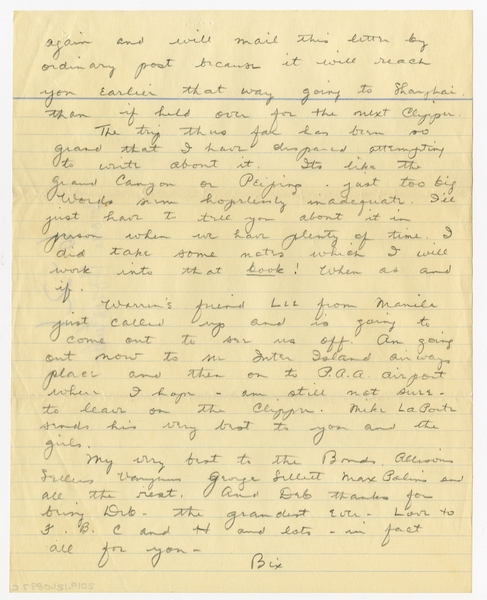 again and will mail this letter by
ordinary post because it will reach
you earlier that way going to Shanghai
than if held over for the next Clipper.
The trip thus far has been so
grand that I have dispaired attempting
to write about it. Its like the
grand Canyon or Peiping. just too big
Words seem hoplessly inadequate. I'll
just have to tell you about it in
person when we have plenty of time. I
did take some notes which I will
work into that book! When as and
if.
Warren's friend Lee from Manila
just called up and is going to
come out to see us off. Am going
out now to Inter Island airways
place and then on to P.A.A. airport
where I hope - am still not sure -
to leave on the Clipper. Mike LaPorte
sends his very best to you and the
girls.
My very best to the Bonds. Allisons
Sellett Max Palins and
all the rest. And Deb thanks for
being Deb - the grandest ever - Love to
F. B. C and H and lots - in fact
all for you -
Bix